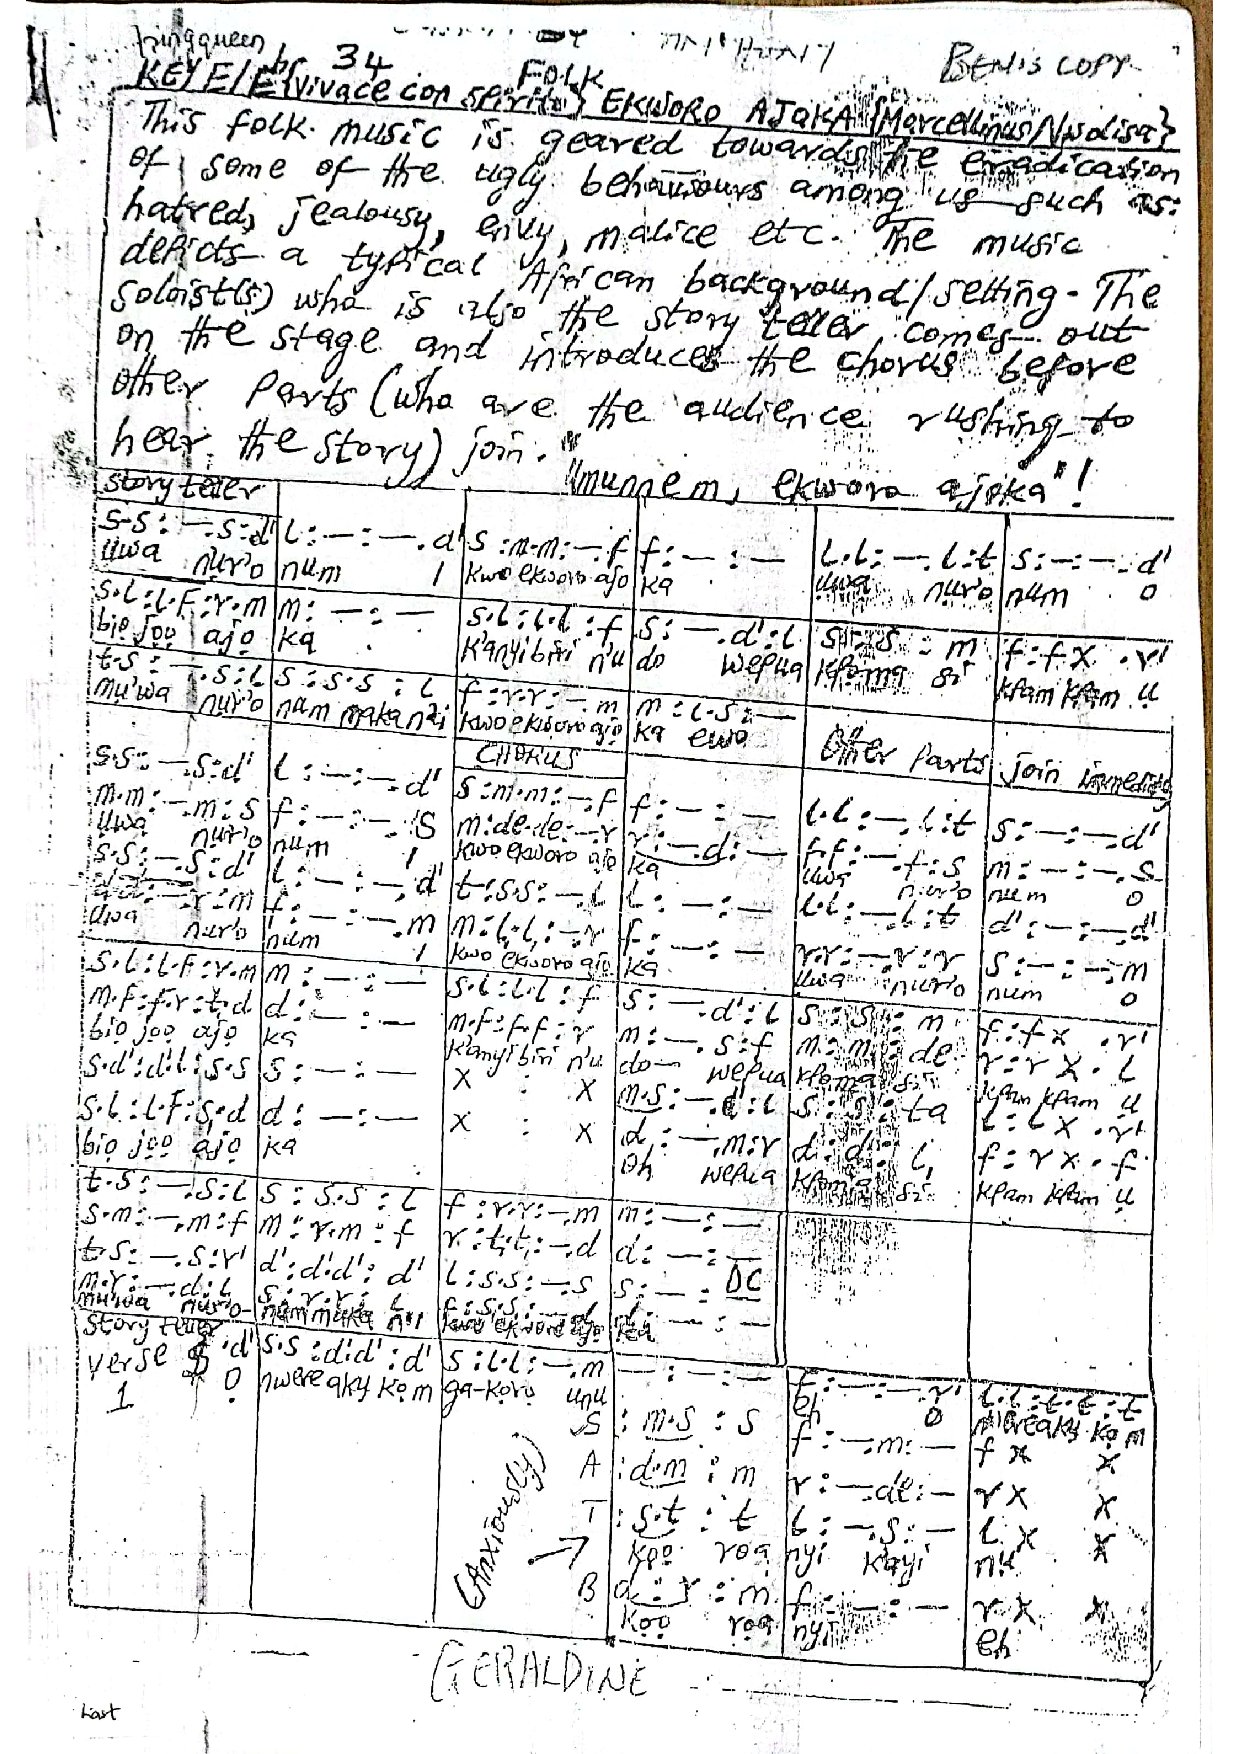 kingqueen
34 FOLK BEN'S COPY
KEY E/Eb {Vivace con spirito} EKWORO AJQKA {Marcellinus/Nwdisa}
This folk music is geared towards the eradication
of some of the ugly behaviours among us such as:
hatred, jealousy, envy, malice etc. The music
depicts a typical African background/setting. The
soloist(s) who is also the story teller comes out
on the stage and introduces the chorus before
other parts (who are the audience rushing to
hear the story) join.
"munnem, ekworo ajoka"!
story teller
s.s : — .s : d' | l : — : — . d' | s : m.m : — .f | f : — : — | l.l : — . l : t | s : — : — . d'
uwa nur'o | num ! | kwo ekworo ajo | ka | uwa nur'o | num o
s.l : l.f : r.m | m : — : — | s.l : l.l : f | s : — .d' : l | s : s : m | f : f x . r'
bio joo ajo | ka | k'anyibiri n'u | do wepua | kpoma si | kpam kpam u
t.s : — .s : l | s : s.s : l | f : r.r : — .m | m : l.s : —
mu'wa nur'o | num maka n'ai | kwo ekworo ajo | ka ewo
CHORUS Other parts join immediately
s.s : — .s : d' | l : — : — .d' | s : m.m : — .f | f : — : — | l.l : — . l : t | s : — : — .d'
m.m : — .m : s | f : — : — .s | m : de.de : — .r | r : — .d : — | f.f : — .f : s | m : — : — .s
uwa nur'o | num ! | kwo ekworo ajo | ka | uwa nur'o | num o
s.s : — .s : d' | l : — : — .d' | t : s.s : — .l | l : — : — | l.l : — .l : t | d' : — : — .d'
d.d : — .r : m | f : — : — .m | m : l,.l, : — .r | f : — : — | r.r : — .r : r | s : — : — .m
uwa nur'o | num ! | kwo ekworo ajo | ka | uwa nur'o | num o
s.l : l.f : r.m | m : — : — | s.l : l.l : f | s : — .d' : l | s : s : m | f : f x . r'
m.f : f.r : t,.d | d : — : — | m.f : f.f : r | m : — . s : f | m : m : de | r : r x . l
bio joo ajo | ka | k'anyibiri n'u | do — wepua | kpoma si | kpam kpam u
s.d' : d'.l : s.s | s : — : — | x : x | m.s : — .d' : l | s : s : ta | l : l x . r'
s.l : l.f : s,.d | d : — : — | x : x | d : — .m : r | d : d : l, | f : r x . f
bio joo ajo | ka | oh wepua | kpoma si | kpam kpam u
t.s : — .s : l | s : s.s : l | f : r.r : — .m | m : — : —
s.m : — .m : f | m : r.m : f | r : t,.t, : — .d | d : — : —
t.s : — .s : r' | d' : d'.d' : d' | l : s.s : — .s | s : — : DC
m.r : — .d : l | s : r.r : l | f : s.s : — .d | d : — : —
mu'wa nur'o | num maka n'ai | kwo ekworo ajo | ka
story teller
verse $ .d' | s.s : d'.d' : d' | s : l.l : — .m | — : — : — | f : — : — .r' | l.l : t.t : t
1 o | nwereaky kom | ga-koro unu | eh o | nwereaky kom
S : m.s : s | f : — .m : — | f x x
(Anxiously) A : d.m : m | r : — .de : — | r x x
T : s.t : t | l : — .s : — | l x x
koo roo | nyi k'ayi | nu
B d : r : m | f : — : — | r x x
koo roo | nyi | eh
GERALDINE
Last